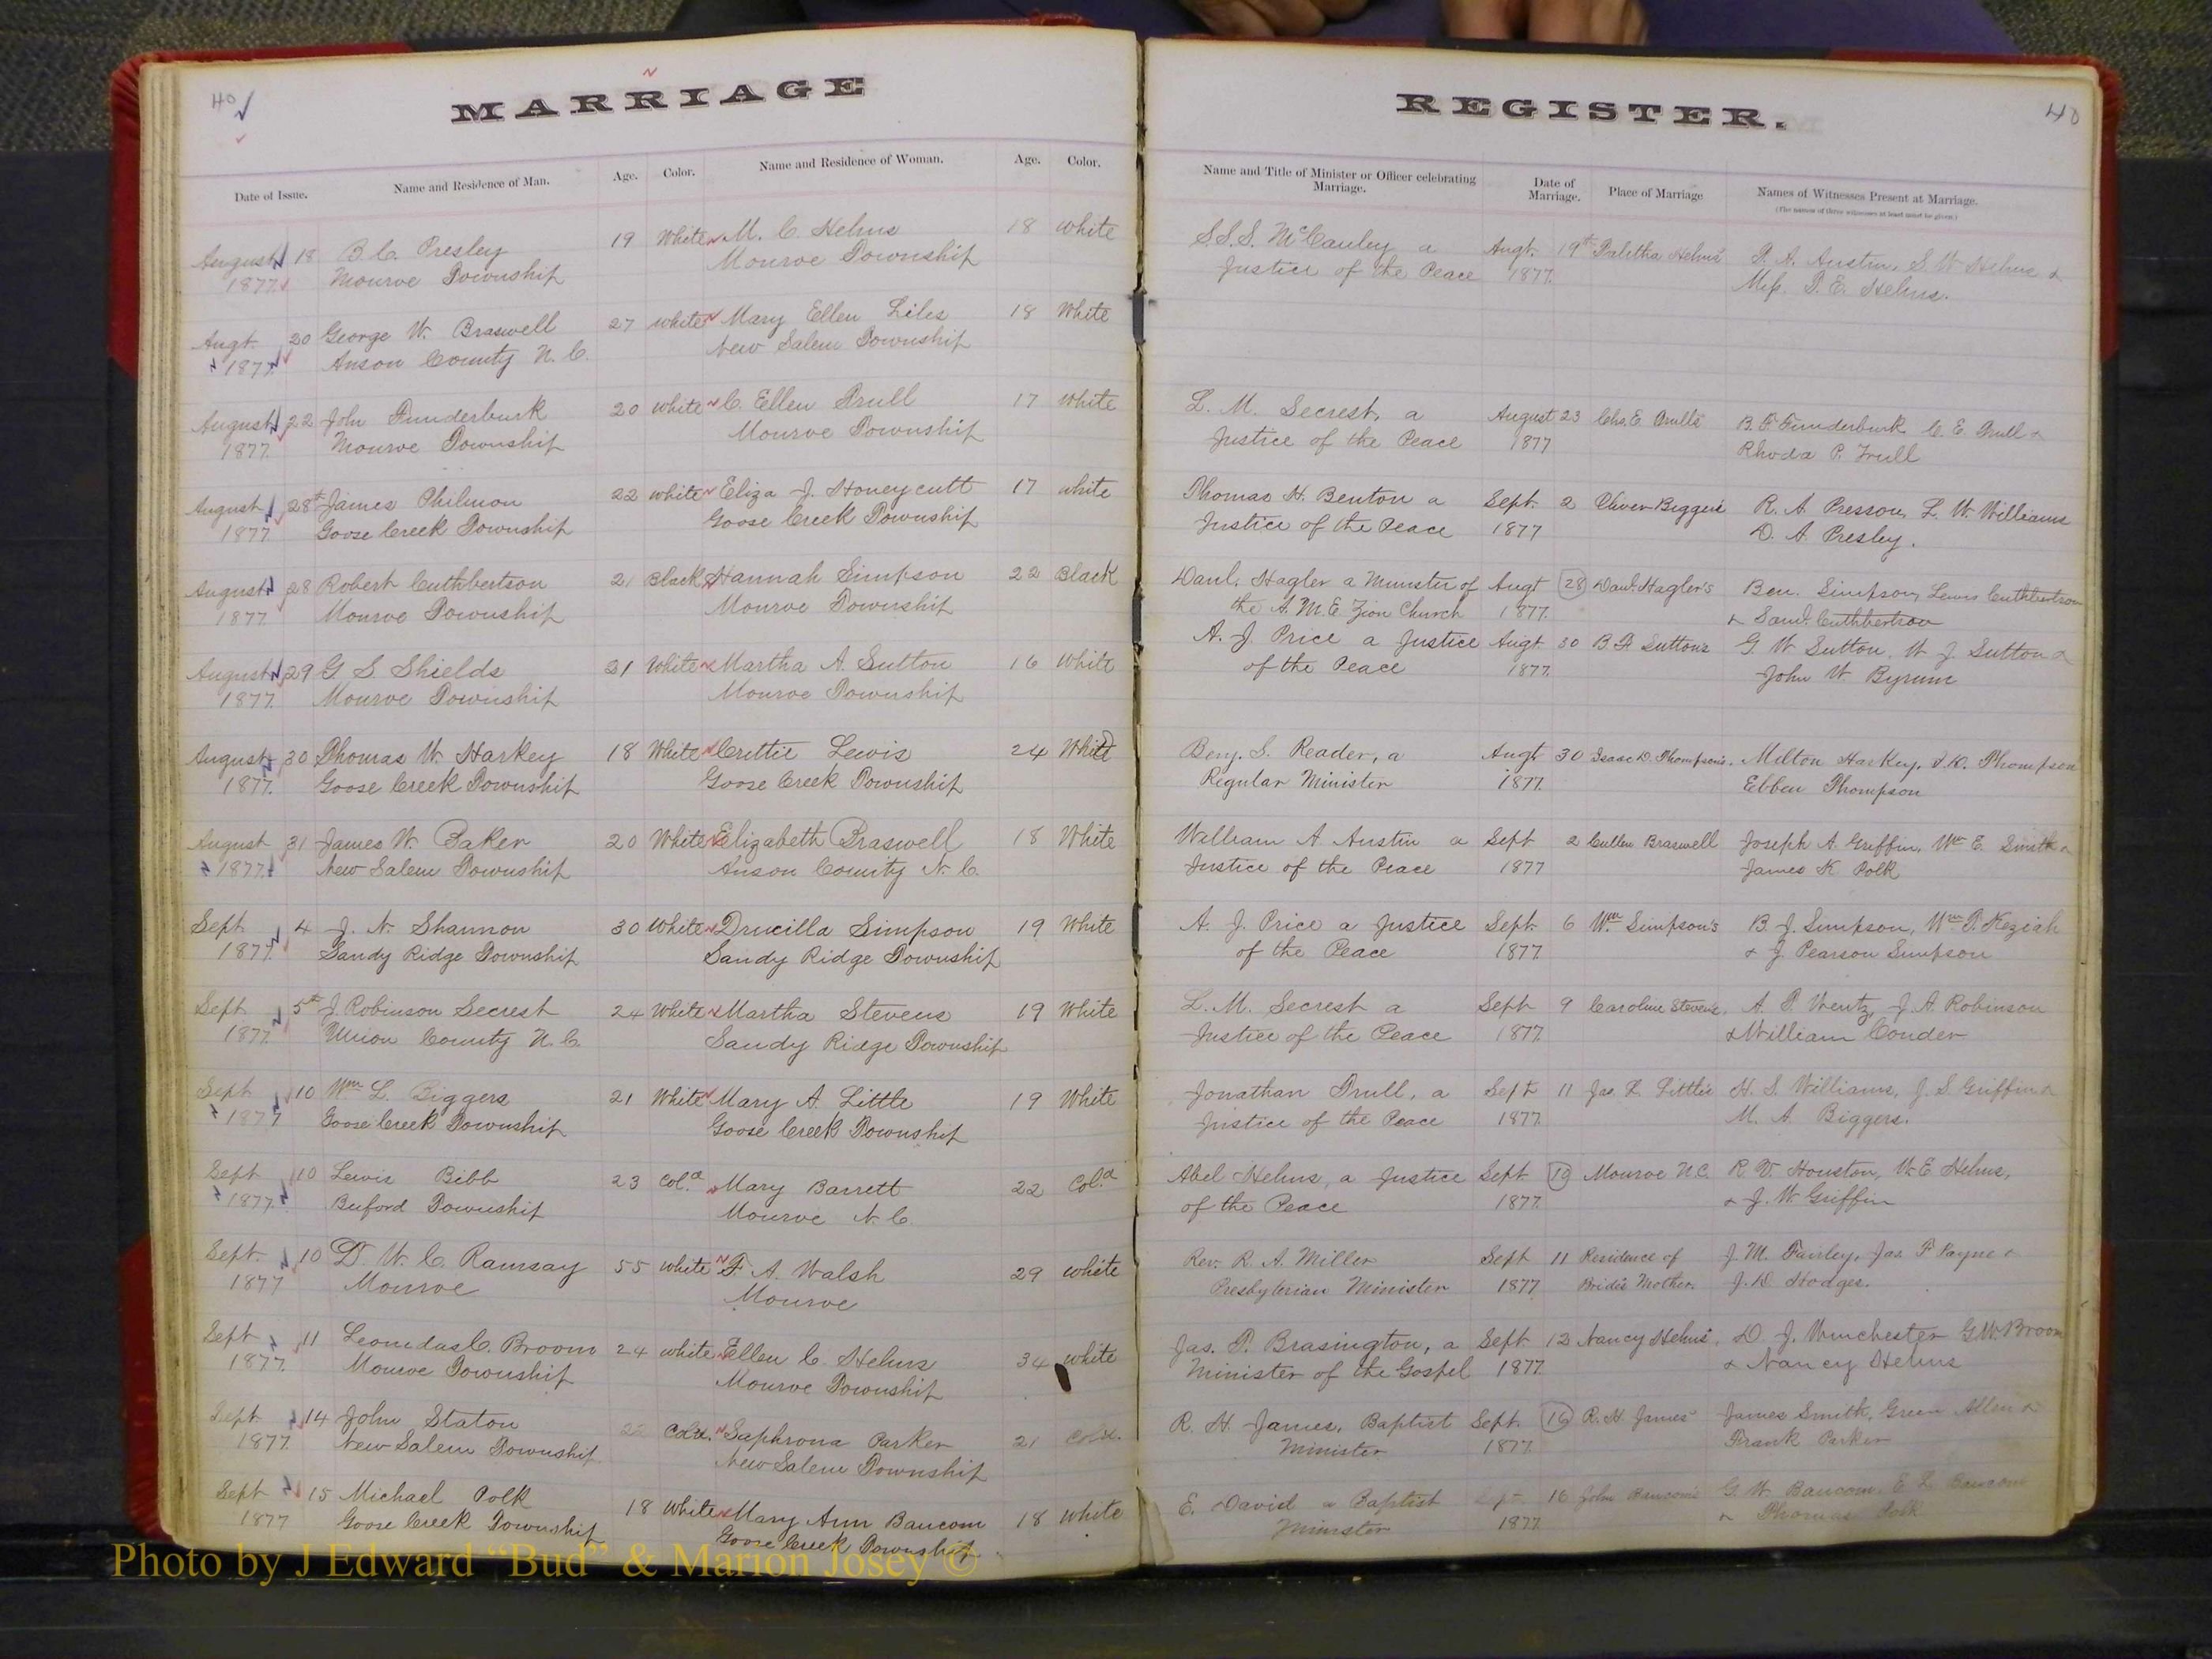 40
MARRIAGE
Date of Issue. Name and Residence of Man. Age. Color. Name and Residence of Woman. Age. Color.
August 18 B. C. Presley 19 White M. C. Helms 18 White
1877. Monroe Township Monroe Township
Augt. 20 George W. Braswell 27 White Mary Ellen Liles 18 White
1877. Anson County N. C. New Salem Township
August 22 John Funderburk 20 White C. Ellen Trull 17 White
1877. Monroe Township Monroe Township
August 28th James Philmon 22 White Eliza J. Honeycutt 17 White
1877. Goose Creek Township Goose Creek Township
August 28 Robert Cuthbertson 21 Black Hannah Simpson 22 Black
1877. Monroe Township Monroe Township
August 29 G S Shields 21 White Martha A. Sutton 16 White
1877. Monroe Township Monroe Township
August 30 Thomas W. Harkey 18 White Crettie Lewis 24 White
1877. Goose Creek Township Goose Creek Township
August 31 James W. Baker 20 White Elizabeth Braswell 18 White
1877. New Salem Township Anson County N. C.
Sept 4 J. N. Shannon 30 White Drucilla Simpson 19 White
1877. Sandy Ridge Township Sandy Ridge Township
Sept 5th J. Robinson Secrest 24 White Martha Stevens 19 White
1877. Union County N. C. Sandy Ridge Township
Sept 10 Wm L. Biggers 21 White Mary A. Little 19 White
1877 Goose Creek Township Goose Creek Township
Sept 10 Lewis Bibb 23 Col.d Mary Barrett 22 Col.d
1877. Buford Township Monroe N. C.
Sept. 10 D. W. C. Ramsay 55 White F. A. Walsh 29 White
1877 Monroe Monroe
Sept 11 Leonidas C. Broom 24 White Ellen C. Helms 34 White
1877. Monroe Township Monroe Township
Sept. 14 John Staton 22 Cold. Saphrona Parker 21 Cold.
1877. New Salem Township New Salem Township
Sept 15 Michael Polk 18 White Mary Ann Baucom 18 White
1877 Goose Creek Township Goose Creek Township
REGISTER.
40
Name and Title of Minister or Officer celebrating Marriage. Date of Marriage. Place of Marriage Names of Witnesses Present at Marriage.
(The names of three witnesses at least must be given.)
S. S. S. McCauley a Augt. 19th Talitha Helms' T. A. Austin, S. W. Helms &
Justice of the Peace 1877. Miss. T. E. Helms.
L. M. Secrest, a August 23 Chs. E. Trull's B. F. Funderburk C. E. Trull &
Justice of the Peace 1877 Rhoda P. Trull
Thomas H. Benton a Sept. 2 Oliver Biggers R. A. Presson, L. W. Williams
Justice of the Peace 1877 D. A. Presley.
Danl. Hagler a Minister of Augt 28 Danl. Hagler's Ben. Simpson, Lewis Cuthbertson
the A. M. E. Zion Church 1877. & Saml. Cuthbertson
A. J. Price a Justice Augt 30 Sutton's G. W. Sutton, W. J. Sutton &
of the Peace 1877. John W Byrum
Benj. S. Reader, a Augt 30 Isaac D. Thompson's. Milton Harkey, I. D. Thompson
Regular Minister 1877. Ebben Thompson
William A Austin a Sept 2 Cullen Braswell Joseph A. Griffin, Wm E. Smith &
Justice of the Peace 1877 James K. Polk
A. J. Price a Justice Sept. 6 Wm Simpson's B. J. Simpson, Wm T. Keziah
of the Peace 1877. & J. Pearson Simpson
L. M. Secrest a Sept 9 Caroline Stevens, A. T. Wentz, J. A. Robinson
Justice of the Peace 1877. & William Conder
Jonathan Trull, a Sept 11 Jas. L. Little H. S. Williams, J. S. Griffin &
Justice of the Peace 1877. M. A. Biggers.
Abel Helms, a Justice Sept. 10 Monroe N.C. R. V. Houston, W. E Helms,
of the Peace 1877. & J. W. Griffin
Rev. R. A. Miller Sept 11 Residence of J. M. Fairley, Jas. F Payne &
Presbyterian Minister 1877 Bride's Mother. J. D. Hodges.
Jas. T. Brasington, a Sept 12 Nancy Helms', D. J. Winchester G. W. Broom
Minister of the Gospel 1877. & Nancy Helms
R. H. James, Baptist Sept. 16 R. H. James' James Smith, Green Allen &
Minister 1877. Frank Parker
E. David a Baptist Sept. 16 John Baucom's G. W. Baucom, E. L. Baucom
Minister 1877. & Thomas Polk
Photo by J Edward “Bud” & Marion Josey ©